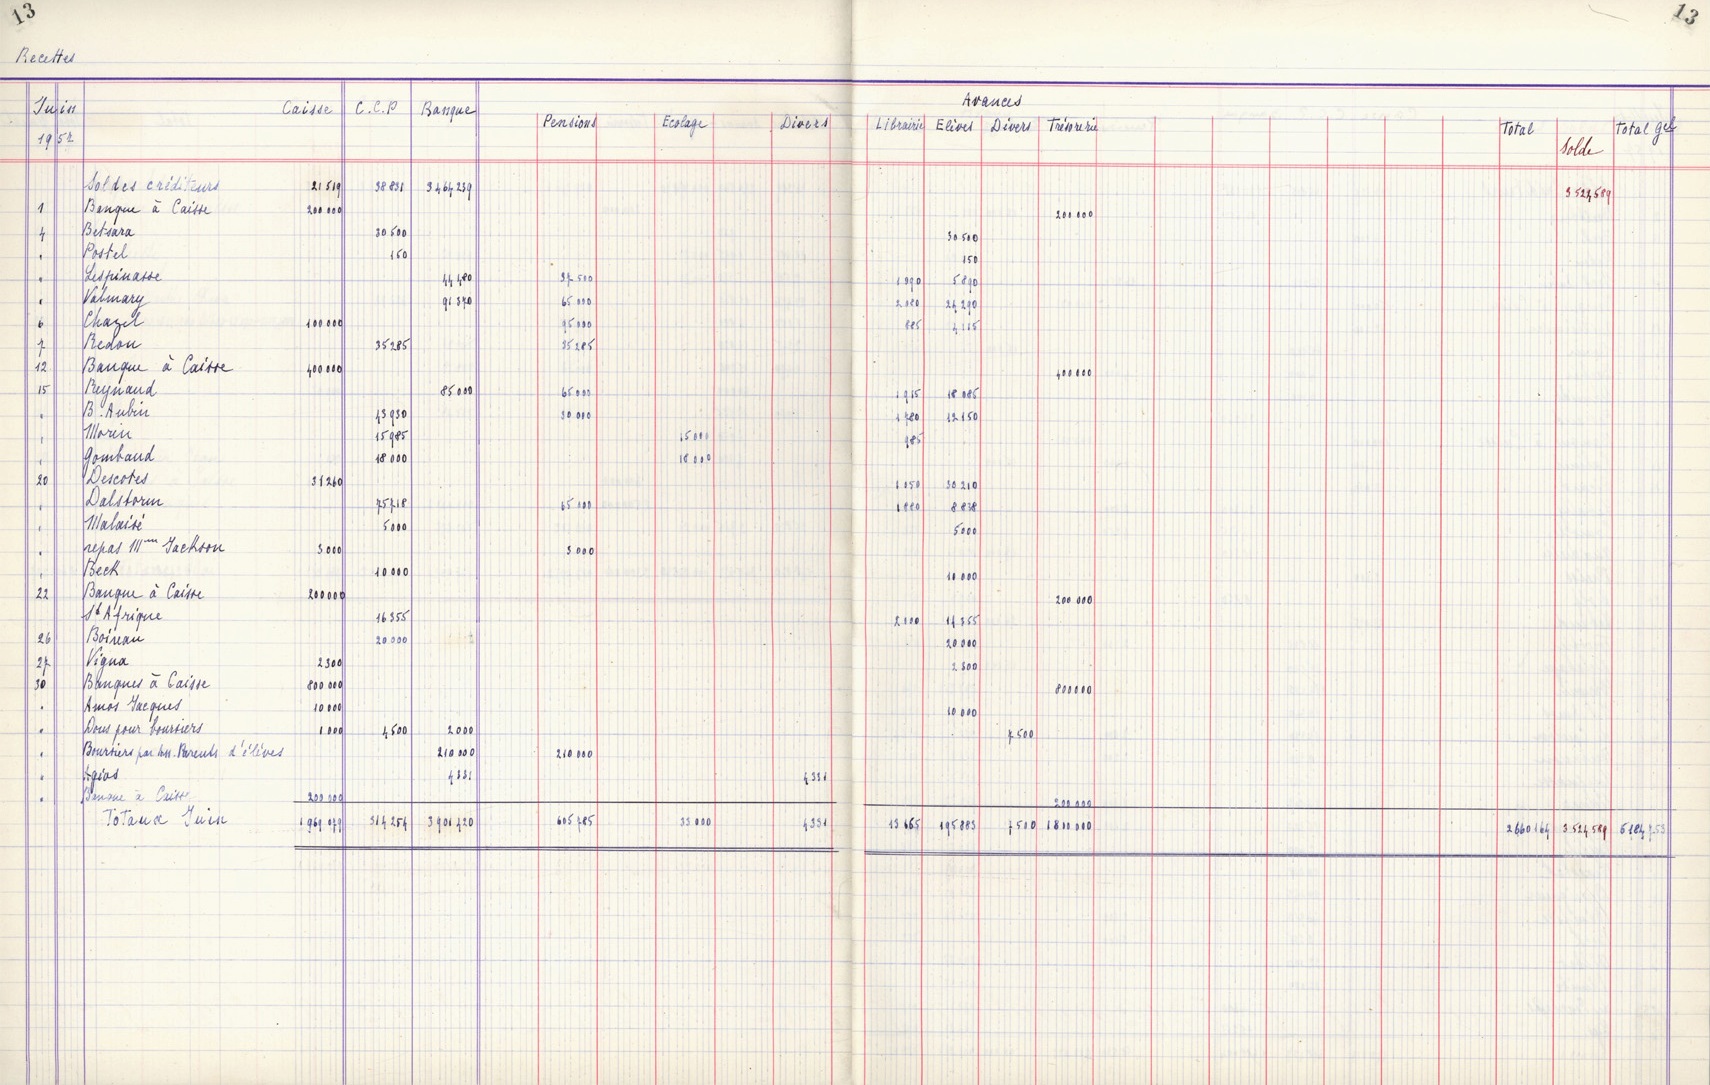 13
13
Recettes
Juin 1957 Caisse C.C.P Banque Pensions Ecolage Divers Avances Librairie Elèves Divers Trésorerie Total Solde Total gal
Soldes créditeurs 21 519 38 831 3 464 239 3 524 589
1 Banque à Caisse 200 000 200 000
4 Betsara 30 500 30 500
" Postel 150 150
" Lespinasse 44 480 37 500 1 090 5 890
" Valmary 91 370 65 000 2 080 24 290
6 Chazel 100 000 95 000 885 4 115
7 Redon 35 285 35 285
12 Banque à Caisse 400 000 400 000
15 Reynaud 85 000 65 000 1 915 18 085
" B. Aubin 43 930 30 000 1 780 12 150
" Morin 15 985 15 000 985
" Gombaud 18 000 18 000
20 Descotes 31 260 1 050 30 210
" Dalstorm 75 718 65 000 1 880 8 838
" Malaisé 5 000 5 000
" repas Mme Jackson 3 000 3 000
" Beck 10 000 10 000
22 Banque à Caisse 200 000 200 000
St Afrique 16 355 2 000 14 355
26 Boireau 20 000 20 000
27 Vigna 2 300 2 300
30 Banques à Caisse 800 000 800 000
" Amos Jacques 10 000 10 000
" Dons pour boursiers 1 000 4 500 2 000 7 500
" Boursiers par Ass. Parents d'élèves 210 000 210 000
" Agios 4 331 4 331
" Banque à Caisse 200 000 200 000
Totaux Juin 1 969 079 314 254 3 901 420 605 785 33 000 4 331 13 665 195 883 7 500 1 800 000 2 660 164 3 524 589 6 184 753